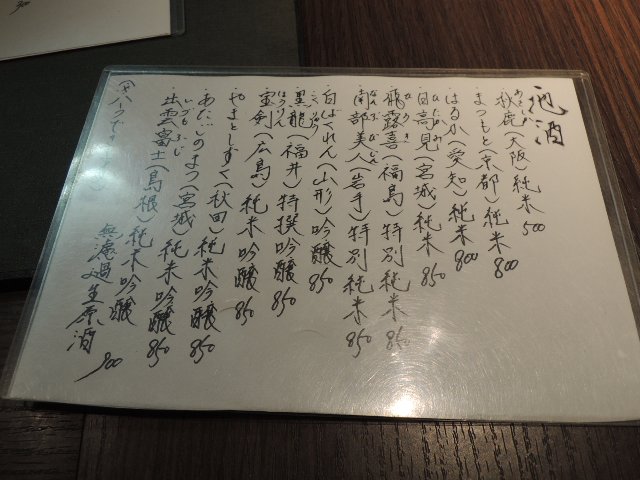 地酒
秋鹿(大阪)純米 500
まつもと(京都)純米 800
はるか(愛知)純米 800
日高見(宮城)純米 850
飛露喜(福島)特別純米 850
南部美人(岩手)特別純米 850
白ばくれん(山形)吟醸 850
黒龍(福井)特撰吟醸 850
宝剣(広島)純米吟醸 850
やまとしずく(秋田)純米吟醸 850
あたごのまつ(宮城)純米吟醸 850
出雲富士(島根)純米吟醸
無濾過生原酒 900
300